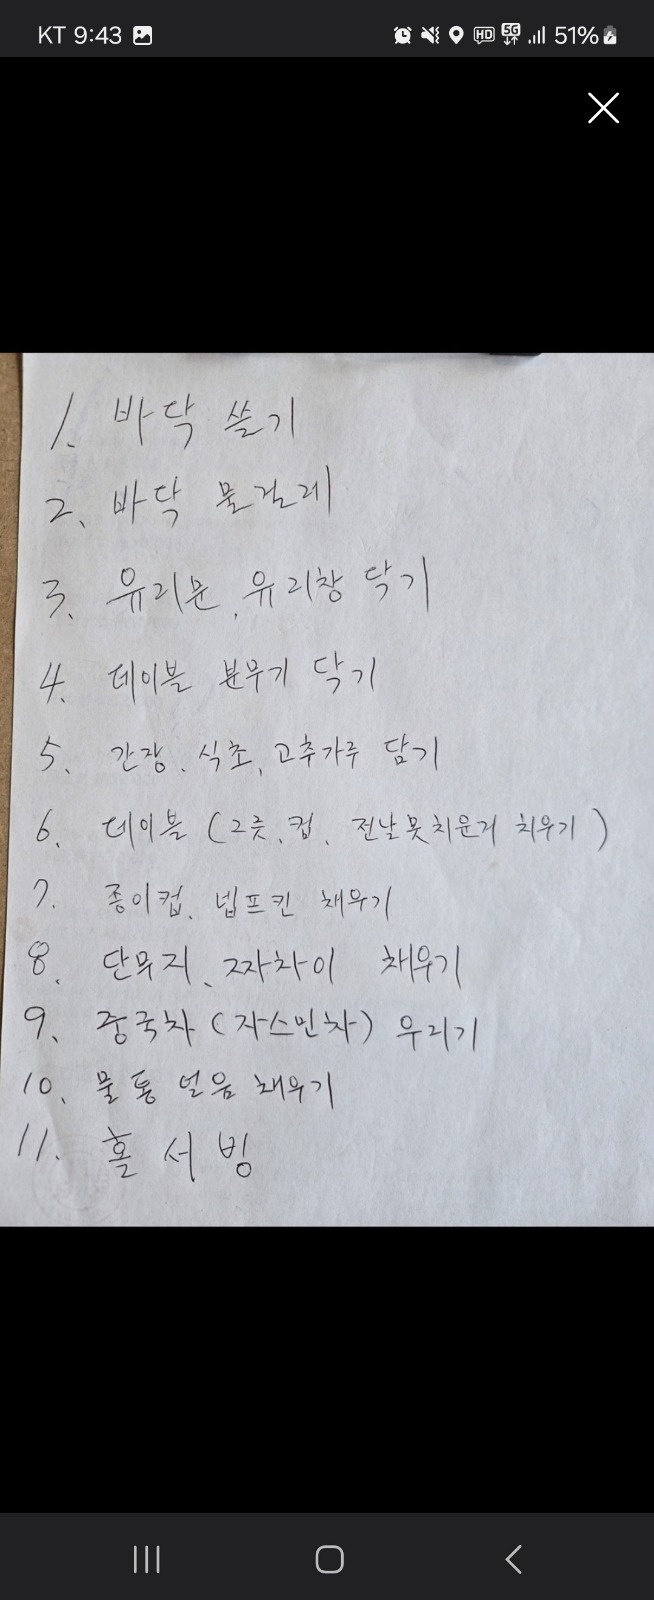 KT 9:43 HD 5G 51%
1. 바닥 쓸기
2. 바닥 물걸레
3. 유리문, 유리창 닦기
4. 테이블 분무기 닦기
5. 간장, 식초, 고추가루 담기
6. 테이블 (그릇, 컵, 전날 못치운거 치우기)
7. 종이컵, 넵프킨 채우기
8. 단무지, 짜차이 채우기
9. 중국차 (자스민차) 우리기
10. 물통 얼음 채우기
11. 홀 서빙